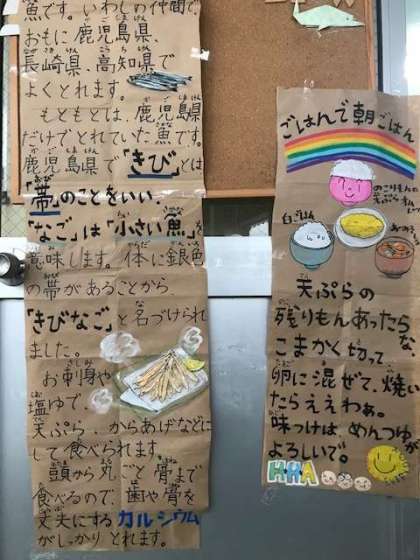 魚です。いわしの仲間で、
おもに鹿児島県、
長崎県、高知県で
よくとれます。
もともとは、鹿児島県
だけでとれていた魚です。
鹿児島県で「きび」とは
「帯」のことをいい、
「なご」は「小さい魚」を
意味します。体に銀色
の帯があることから
「きびなご」と名づけられ
ました。
お刺身や
塩ゆで、
天ぷら、からあげなどに
して食べられます。
頭から丸ごと骨まで
食べるので、歯や骨を
丈夫にするカルシウム
がしっかりとれます。
ごはんで朝ごはん
白ごはん
天ぷらの
残りもんあったらな
こまかく切って
卵に混ぜて、焼い
たらええわぁ。
味つけは、めんつゆが
よろしいで。